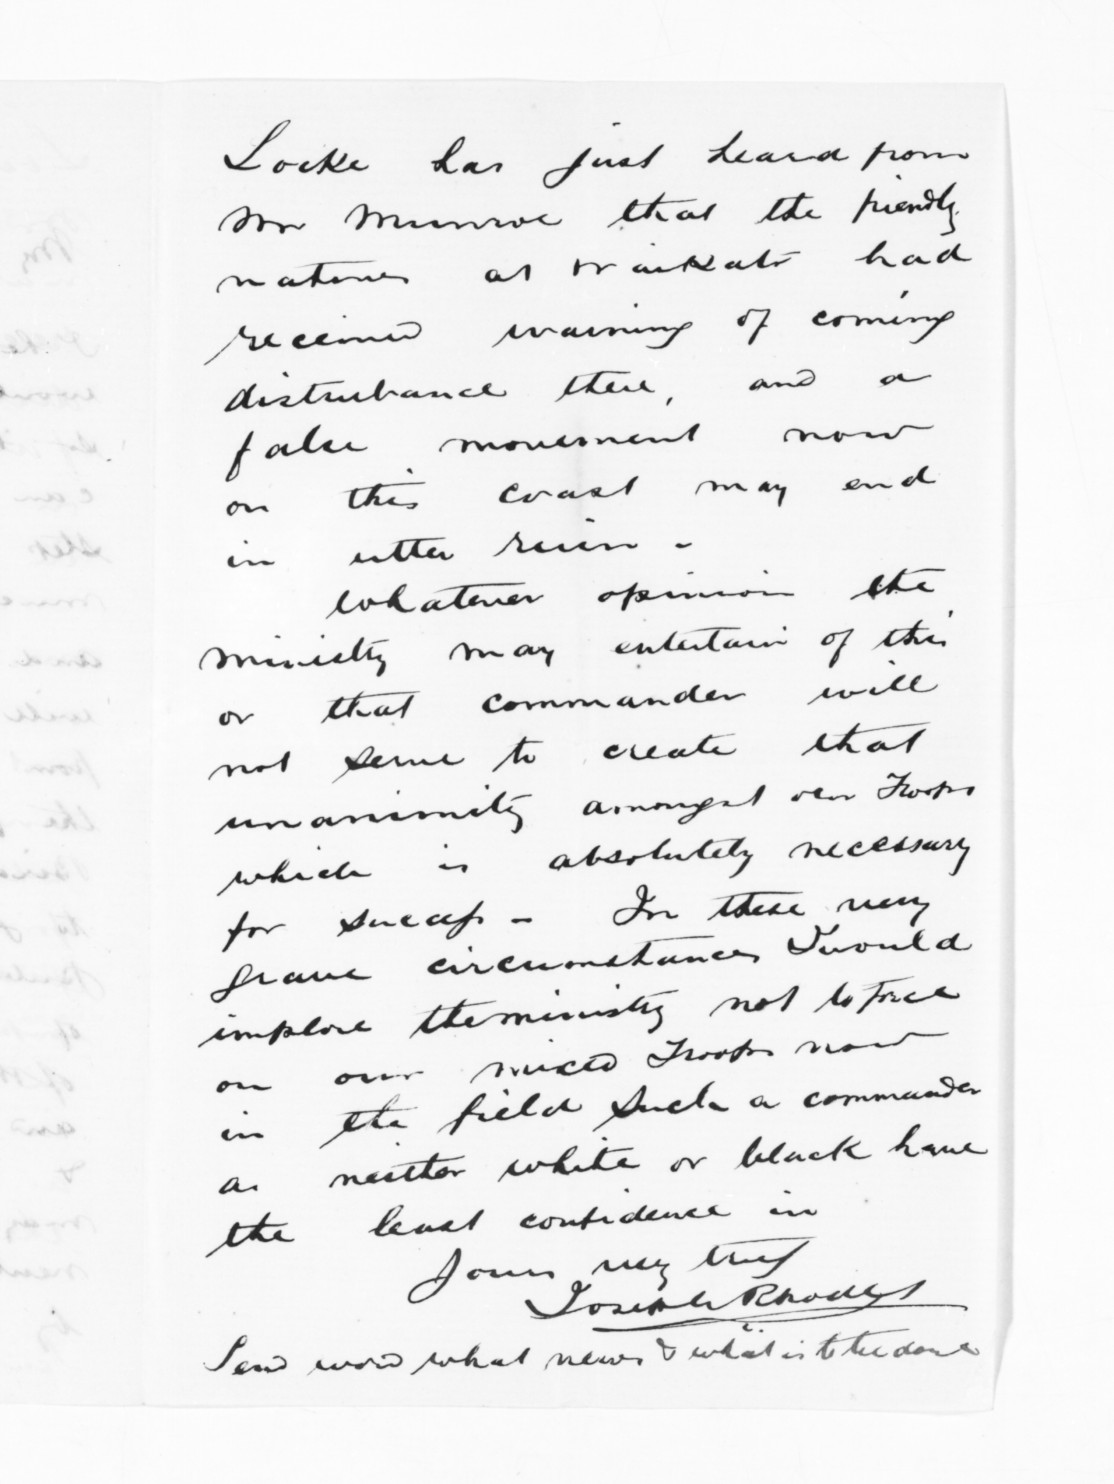 Locke has just heard from
Mr Munroe that the friendly
natives at Waikato had
received warning of coming
disturbance there, and a
false movement now
on this coast may end
in utter ruin -
Whatever opinion the
ministry may entertain of this
or that commander will
not serve to create that
unanimity amongst our Troops
which is absolutely necessary
for success - In these very
grave circumstances I would
implore the ministry not to force
on our mixed Troops now
in the field such a commander
as neither white or black have
the least confidence in
Yours very truly
Joseph Rhodes
Send word what news & what is to be done